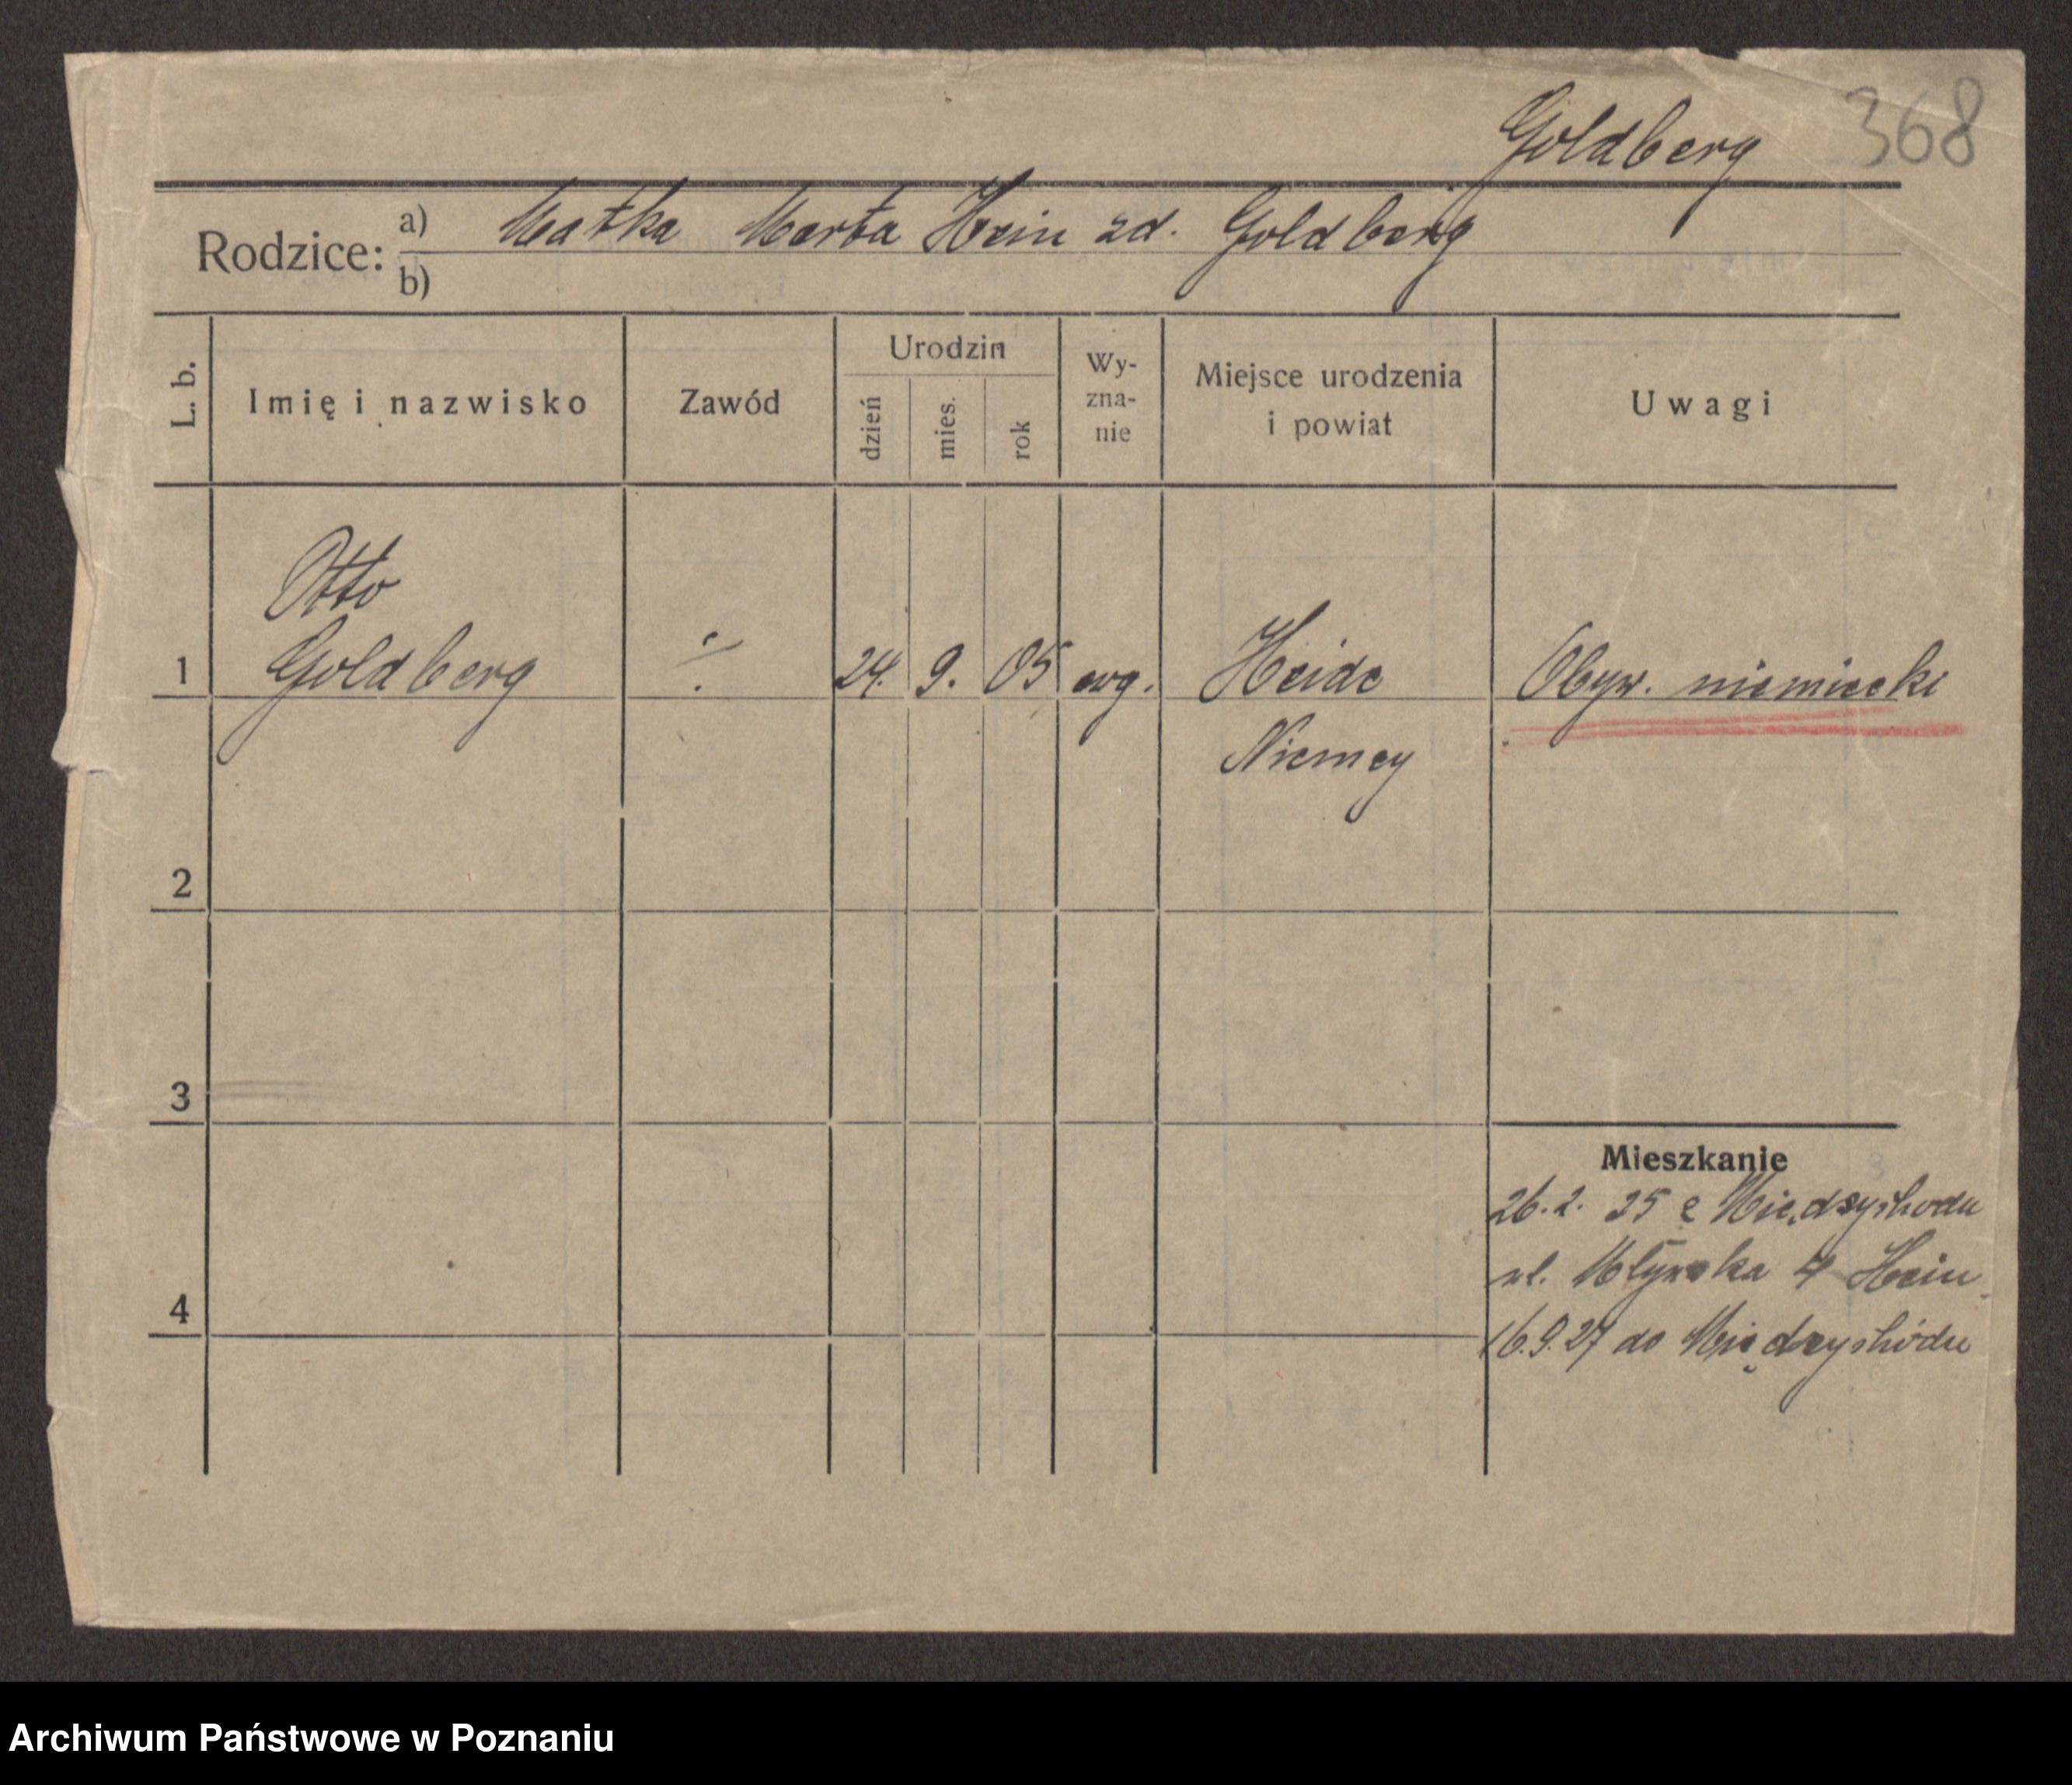 368
Goldberg
Rodzice: a) Matka Marta Hein zd. Goldberg
b)
L. b. Imię i nazwisko Zawód Urodzin dzień mies. rok Wy-zna-nie Miejsce urodzenia i powiat Uwagi
Otto
1 Goldberg ·/. 24. 9. 05 ewg. Heide Obyw. niemiecki
Niemcy
2
3
Mieszkanie
26. 2. 25 z Międzychodu
ul. Młyńska 4 Hein
4
16.9.27 do Międzychodu
Archiwum Państwowe w Poznaniu